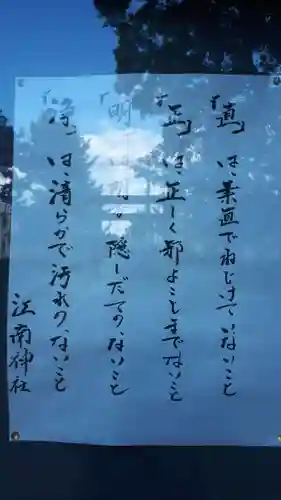 「直」は、素直でねじけていないこと
「正」は正しく邪よこしまでないこと
「明」は明るく隠しだてのないこと
「浄」は、清らかで汚れのないこと
江南神社